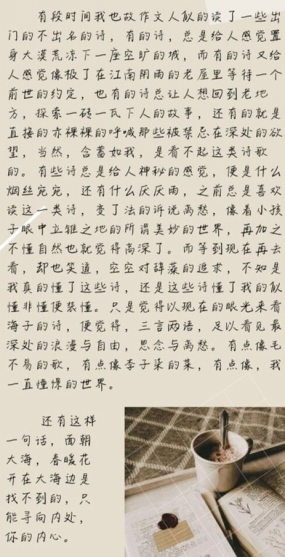 有段时间我也故作文人似的读了一些出
门的不出名的诗，有的诗，总是给人感觉置
身大漠荒凉下一座空旷的城，而有的诗又给
人感觉像极了在江南阴雨的老屋里等待一个
前世的约定，也有的诗总让人想回到老地
方，探索一砖一瓦下人的故事，还有的就是
直接的赤裸裸的呼喊那些被禁忌在深处的欲
望，当然，含蓄如我，是看不起这类诗歌
的。有些诗总是给人神秘的感觉，便是什么
烟丝宛宛，还有什么灰灰雨，之前总是喜欢
读这一类诗，变了法的诉说离愁，像着小孩
子眼中立雅之地的所谓美妙的世界，再加之
不懂自然也就觉得高深了。而等到现在再去
看，却也笑道，空空对辞藻的追求，不知是
我真的懂了这些诗，还是这些诗懂了我的似
懂非懂便装懂。只是觉得以现在的眼光来看
海子的诗，便觉得，三言两语，足以看见最
深处的浪漫与自由，思念与离愁。有点像毛
不易的歌，有点像李子柒的菜，有点像，我
一直憧憬的世界。
还有这样
一句话，面朝
大海，春暖花
开在大海边是
找不到的，只
能寻向内处，
你的内心。